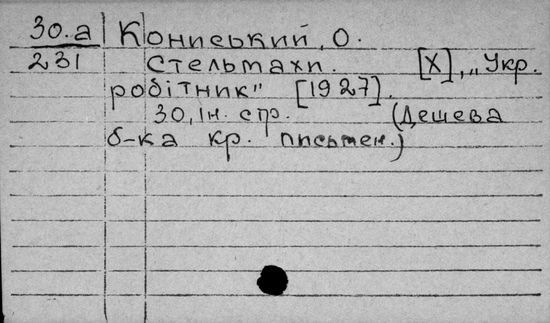 30.а Кониський, О.
231 Стельмахи. [Х], „Укр.
робітник" [1927].
30, Ін. стр. (Дешева
б-ка кр. письмен.)